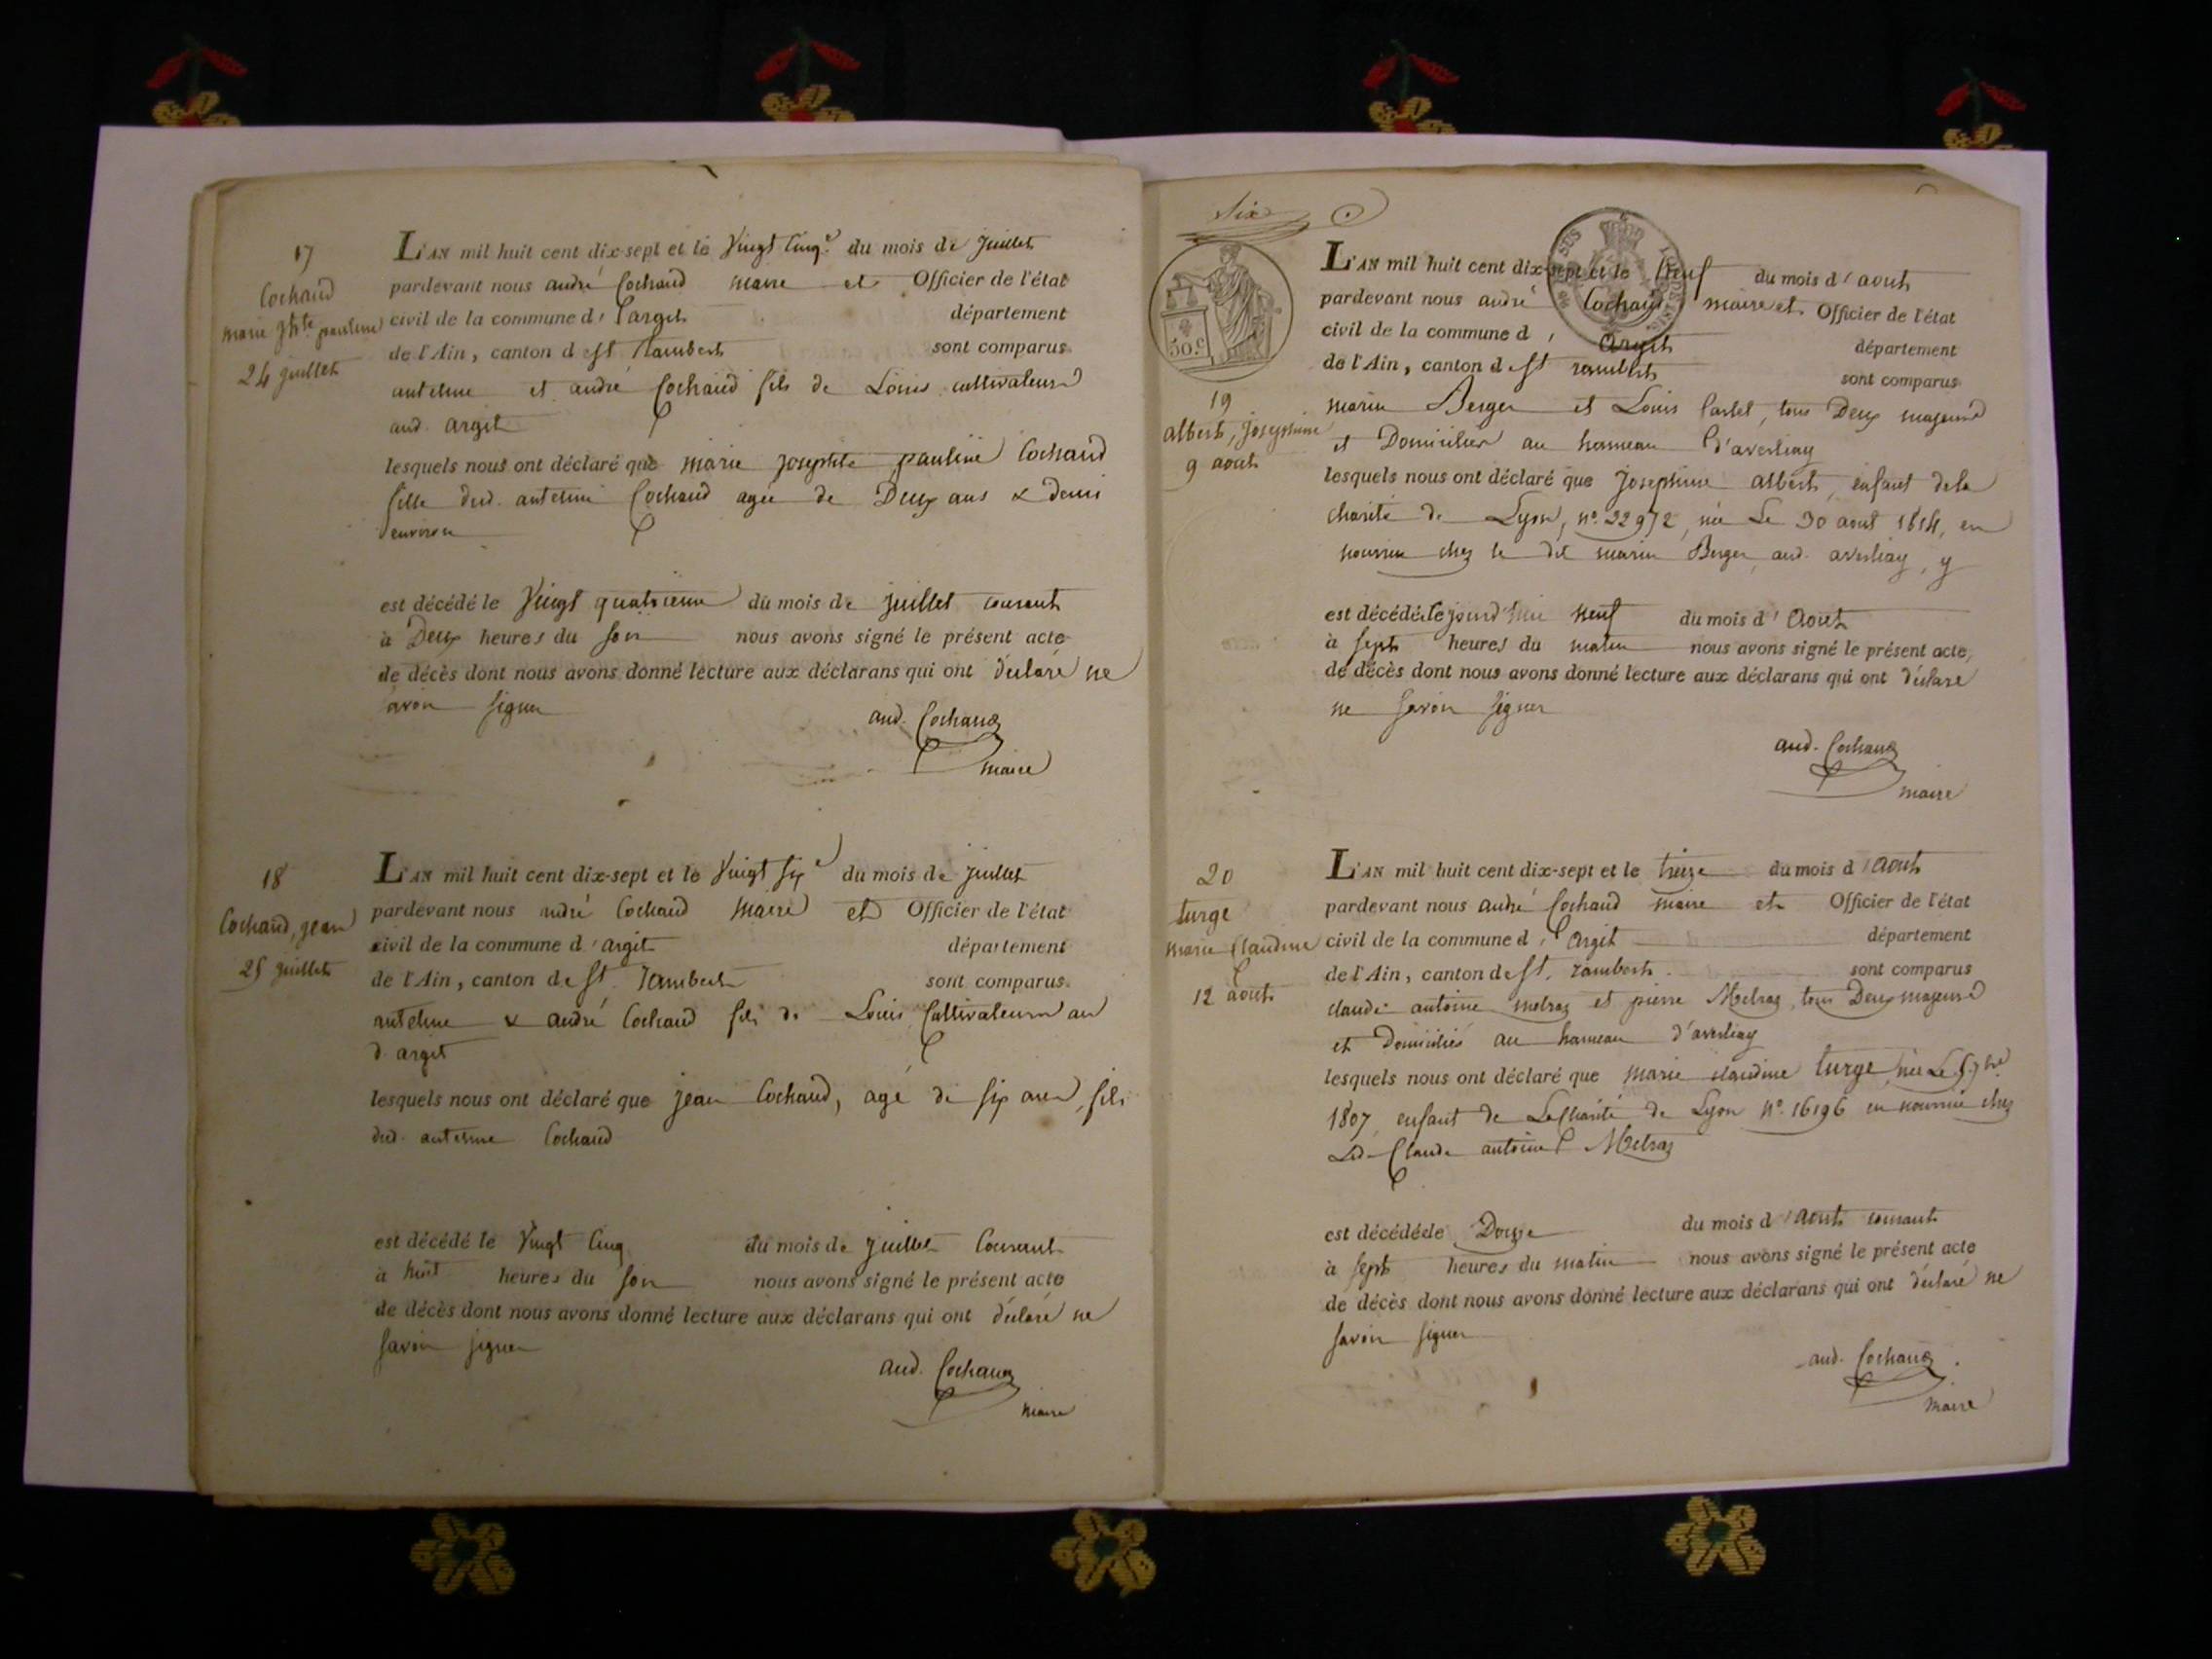 17
Cochaud
marie jhte pauline
24 juillet
L'AN mil huit cent dix-sept et le Vingt Cinqe du mois de Juillet
pardevant nous andré Cochaud maire et Officier de l'état
civil de la commune d'argit département
de l'Ain, canton de St Rambert sont comparus
antelme et andré Cochaud fils de Louis cultivateurs
aud. argit
lesquels nous ont déclaré que marie josephte pauline Cochaud
fille dud. antelme Cochaud agée de Deux ans & demi
environ
est décédé le Vingt quatrieme du mois de juillet courant
à Deux heures du soir nous avons signé le présent acte
de décès dont nous avons donné lecture aux déclarans qui ont déclaré ne
savoir signer
and. Cochaud
maire
18
Cochaud, jean
25 juillet
L'AN mil huit cent dix-sept et le Vingt sixe du mois de juillet
pardevant nous andré Cochaud maire et Officier de l'état
civil de la commune d'argit département
de l'Ain, canton de St. rambert sont comparus
antelme & andré Cochaud fils de Louis Cultivateurs au
d. argit
lesquels nous ont déclaré que jean Cochaud, agé de six ans, fils
dud. antelme Cochaud
est décédé le Vingt Cinq du mois de juillet Courant
à huit heures du soir nous avons signé le présent acte
de décès dont nous avons donné lecture aux déclarans qui ont déclaré ne
savoir signer
and. Cochaud
maire
Six
50.c
19
albert, josephine
9 aout
L'AN mil huit cent dix-sept et le Neuf du mois d'aout
pardevant nous andré Cochaud maire et Officier de l'état
civil de la commune d'argit département
de l'Ain, canton de St rambert sont comparus
marin Berger et Louis Carlet, tous Deux majeurs
et Domiciliés au hameau d'averliay
lesquels nous ont déclaré que Josephine albert, enfant de la
charité de Lyon, n° 22972, née Le 30 aout 1814, en
nourrice chez le dit marin Berger, aud. averliay, y
est décédée le jourd'hui neuf du mois d'Aout
à sept heures du matin nous avons signé le présent acte
de décès dont nous avons donné lecture aux déclarans qui ont déclaré
ne savoir signer
and. Cochaud
maire
20
turge
marie Claudine
12 aout
L'AN mil huit cent dix-sept et le treize du mois d'Aout
pardevant nous andré Cochaud maire et Officier de l'état
civil de la commune d'argit département
de l'Ain, canton de St. rambert sont comparus
claude antoine melraz et pierre Melraz, tous Deux majeurs
et Domiciliés au hameau d'averliay
lesquels nous ont déclaré que marie claudine turge, née Le 5 9bre
1807, enfant de La Charité de Lyon n° 16196 en nourrice chez
Led. Claude antoine Melraz
est décédée le Douze du mois d'aout courant
à sept heures du matin nous avons signé le présent acte
de décès dont nous avons donné lecture aux déclarans qui ont déclaré ne
savoir signer
and. Cochaud
maire